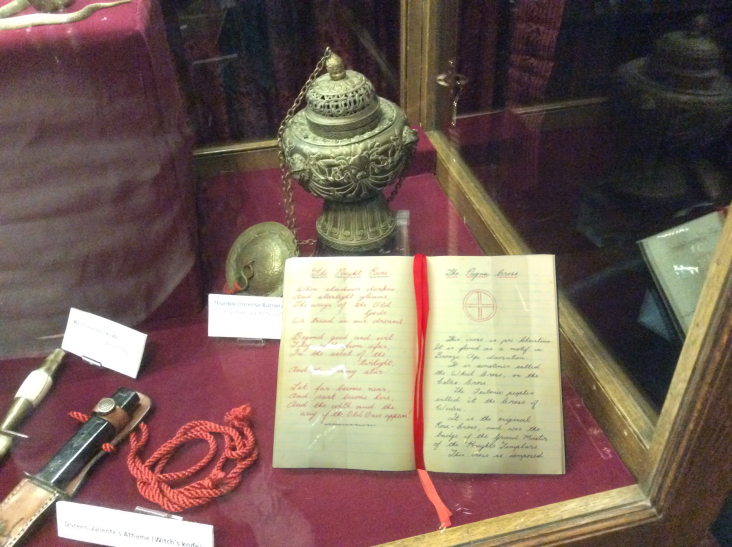 Thurible (Incense Burner)
The Night Run
When shadows darken
And starlight gleams,
The ways of the Old
Gods
We tread in our dreams
Beyond good and evil
afar,
In the
twilight,
And star
Let far become near,
And past become here,
And the with and the
way of the Old Ones appear
The Pagan Cross
This cross is pre-Christian
It is found as a motif in
Bronze Age decoration.
It is sometimes called
the Wheel Cross, or the
Celtic Cross.
The Teutonic peoples
called it the Cross of
Woden.
It is the original
Rose-Cross, and was the
badge of the Grand Master
of the Knights Templars.
This cross is composed
Doreen Valiente's Athame (Witch's knife)